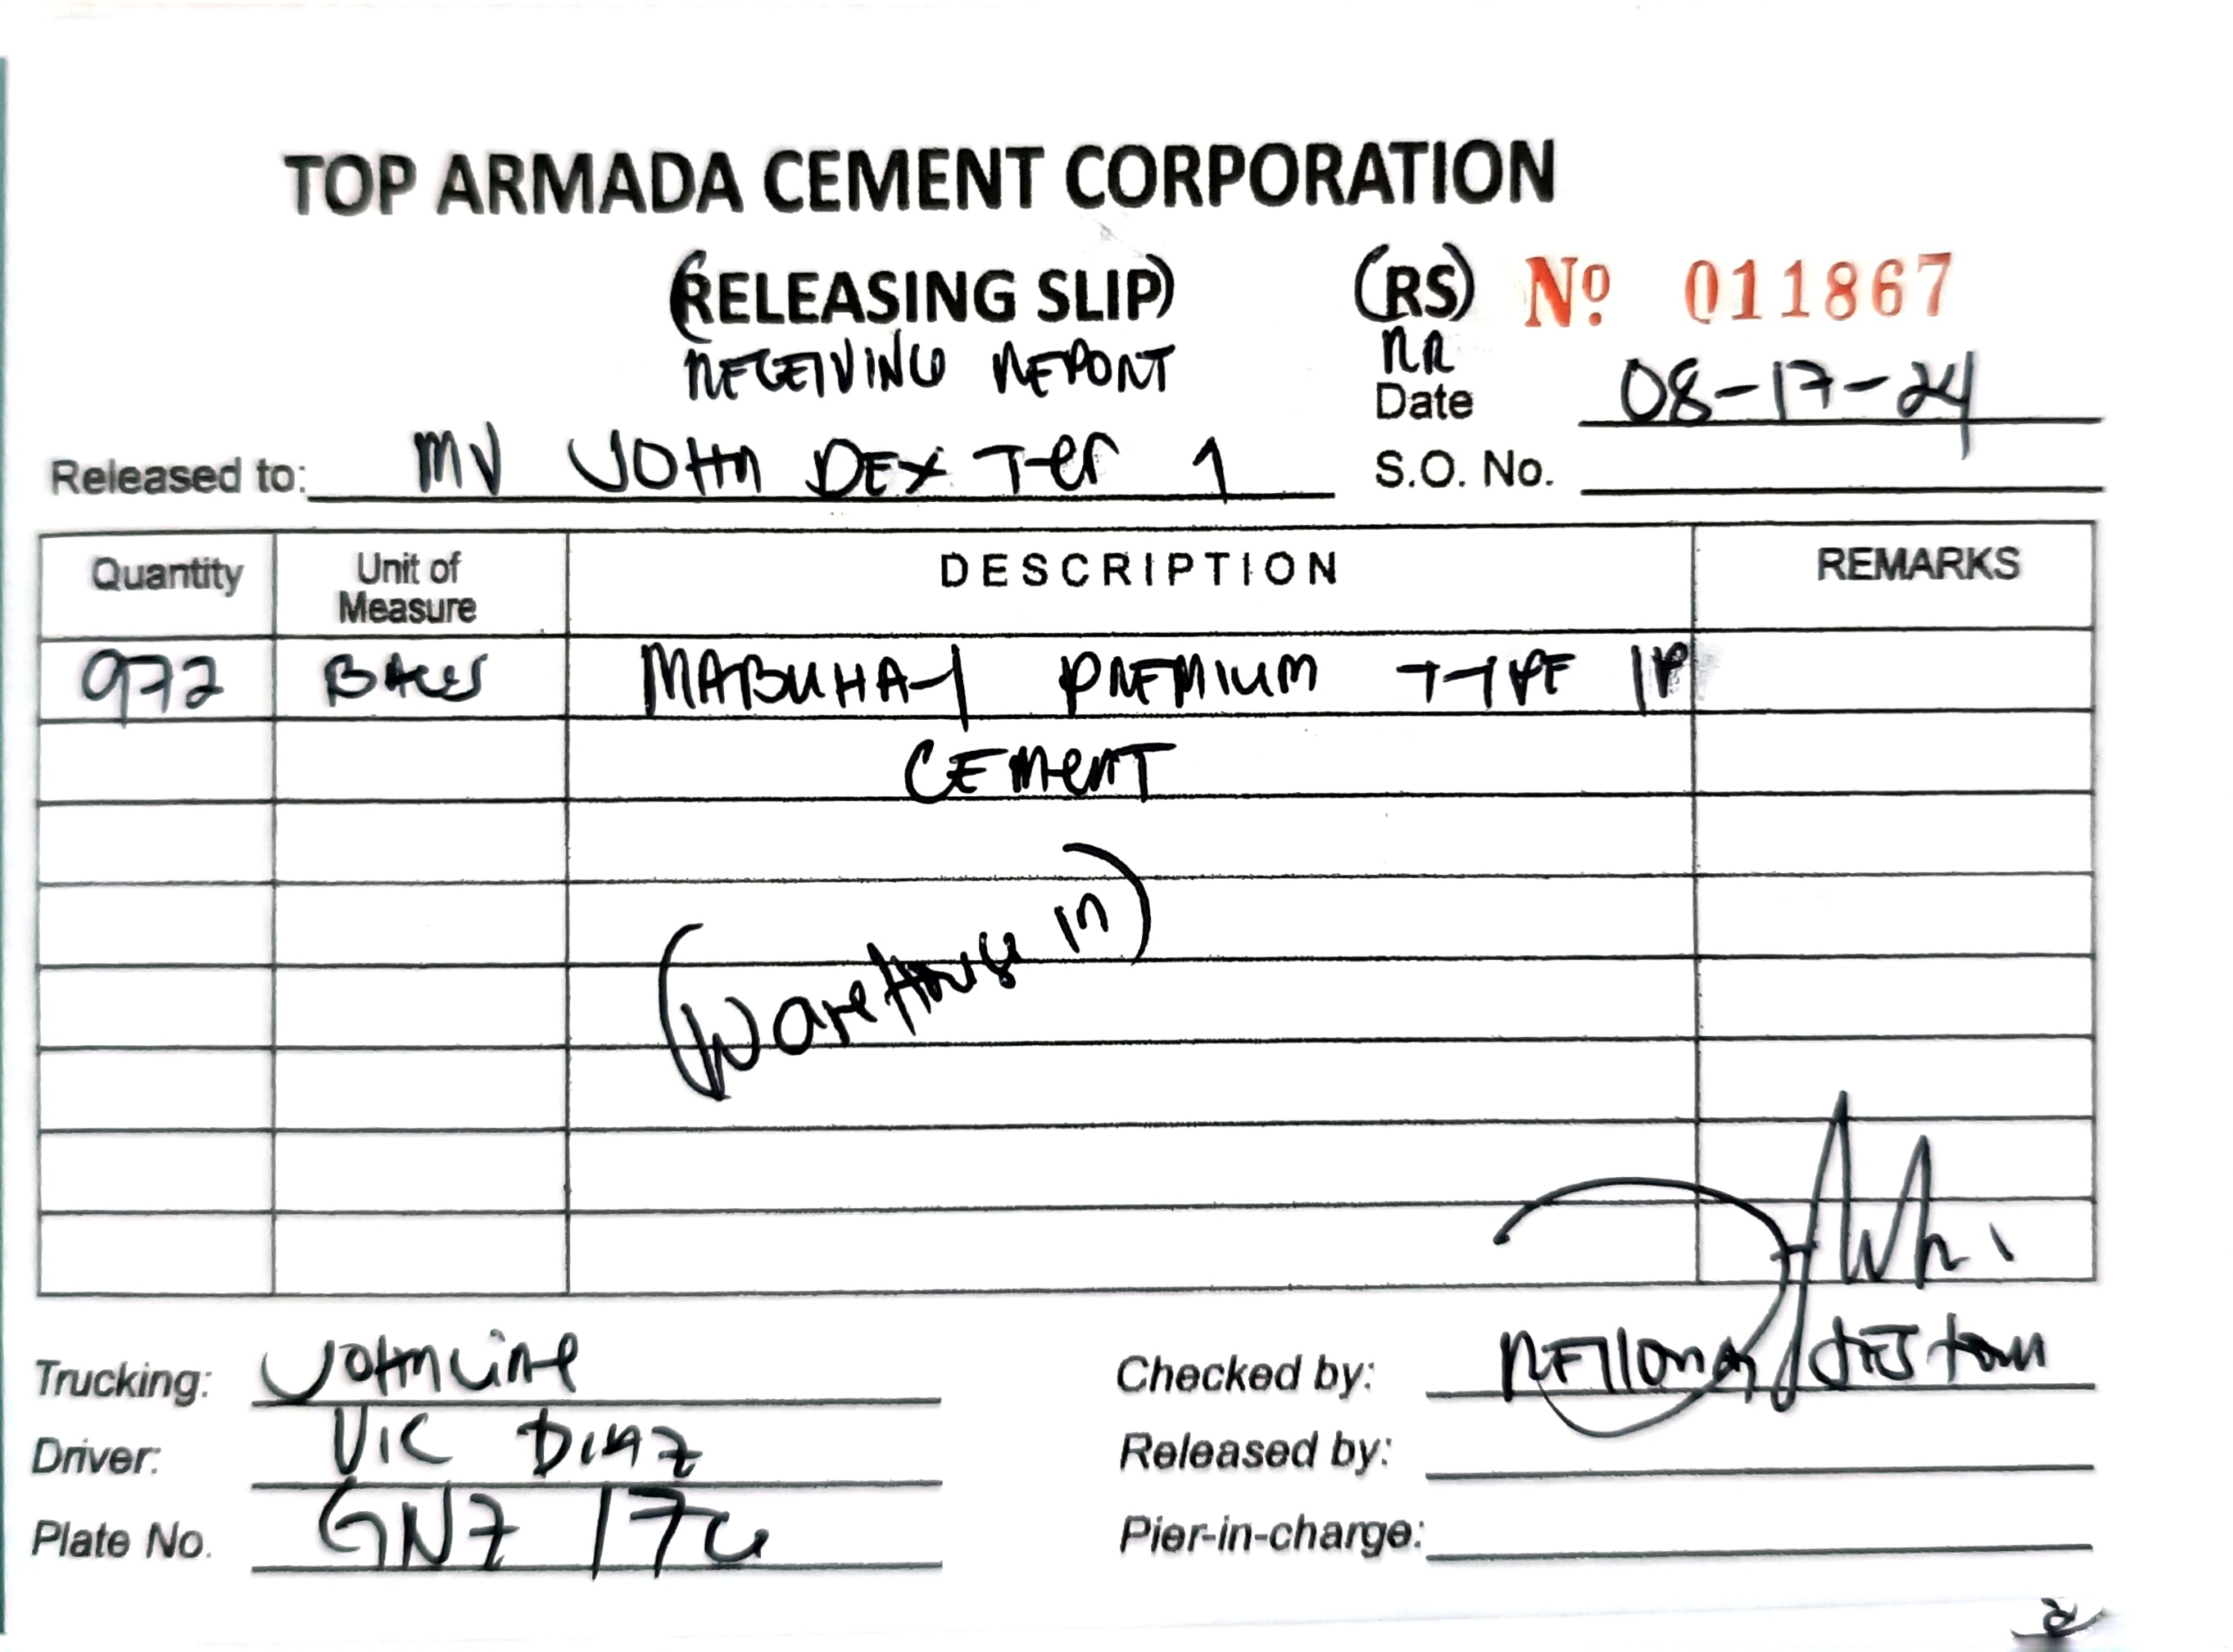 TOP ARMADA CEMENT CORPORATION
(RELEASING SLIP) (RS) Nº 011867
RECEIVING REPORT RR
Date 08-17-24
Released to: MV JOHN DEXTER 1 S.O. No.
Quantity Unit of Measure DESCRIPTION REMARKS
972 BAGS MABUHAY PREMIUM TYPE 1P
CEMENT
(Warehouse in)
Trucking: Johnline Checked by:
Driver: VIC DIAZ Released by:
Plate No. GNZ Pier-in-charge: